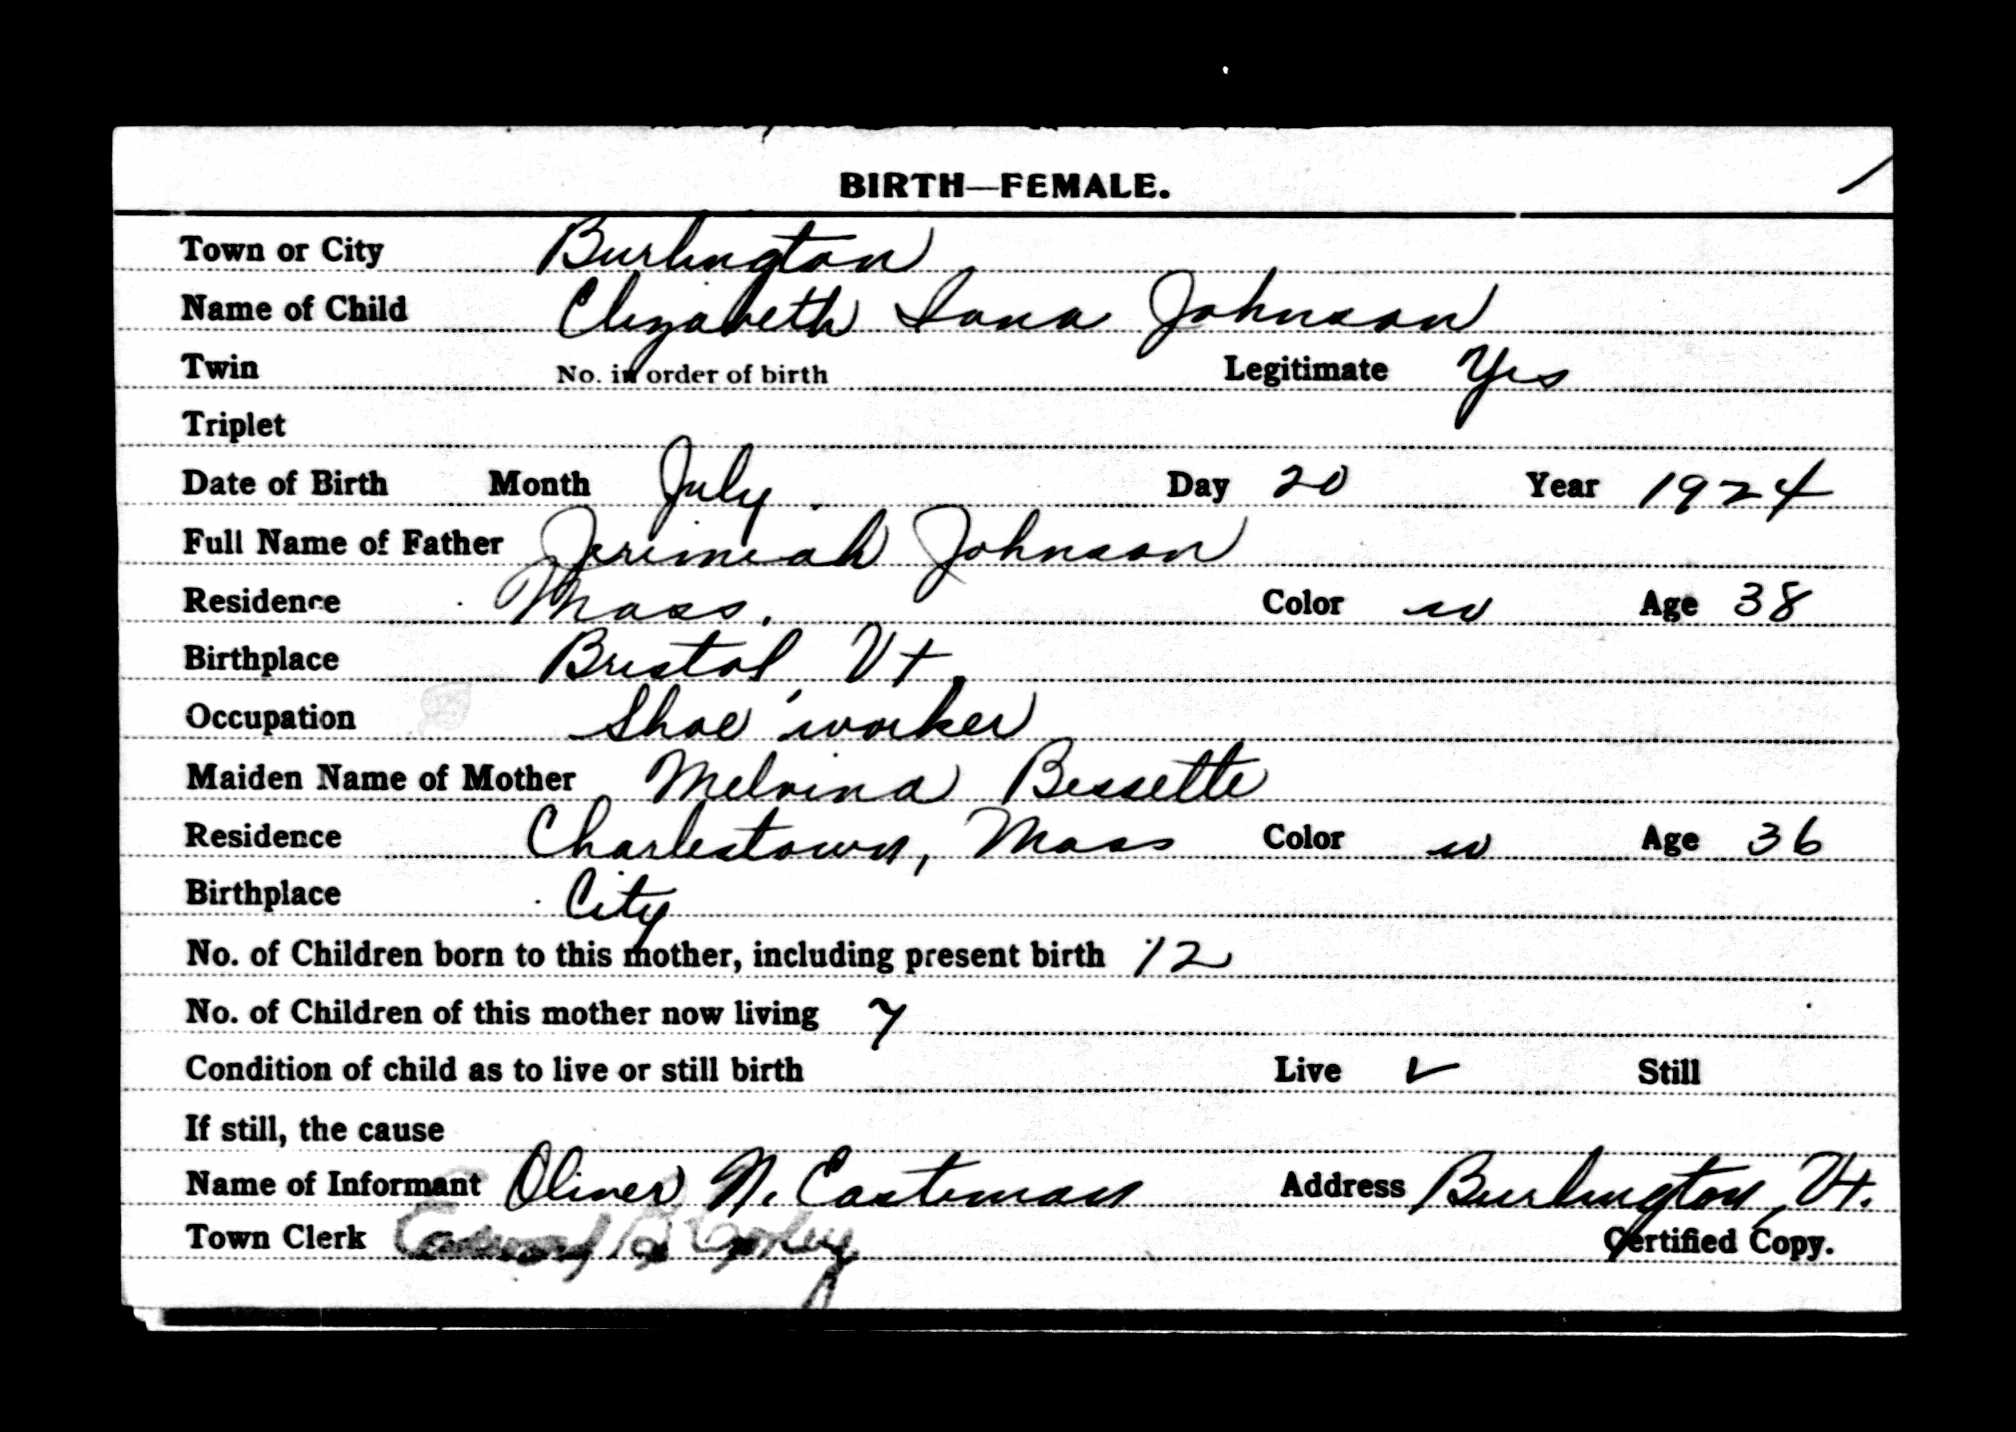 BIRTH—FEMALE.
Town or City Burlington
Name of Child Elizabeth Iona Johnson
Twin No. in order of birth Legitimate Yes
Triplet
Date of Birth Month July Day 20 Year 1924
Full Name of Father Jerimiah Johnson
Residence Mass. Color w Age 38
Birthplace Bristol, Vt.
Occupation Shoe worker
Maiden Name of Mother Melvina Bessette
Residence Charlestown, Mass Color w Age 36
Birthplace City
No. of Children born to this mother, including present birth 12
No. of Children of this mother now living 7
Condition of child as to live or still birth Live ✓ Still
If still, the cause
Name of Informant Oliver N. Eastman Address Burlington, Vt.
Town Clerk
Certified Copy.